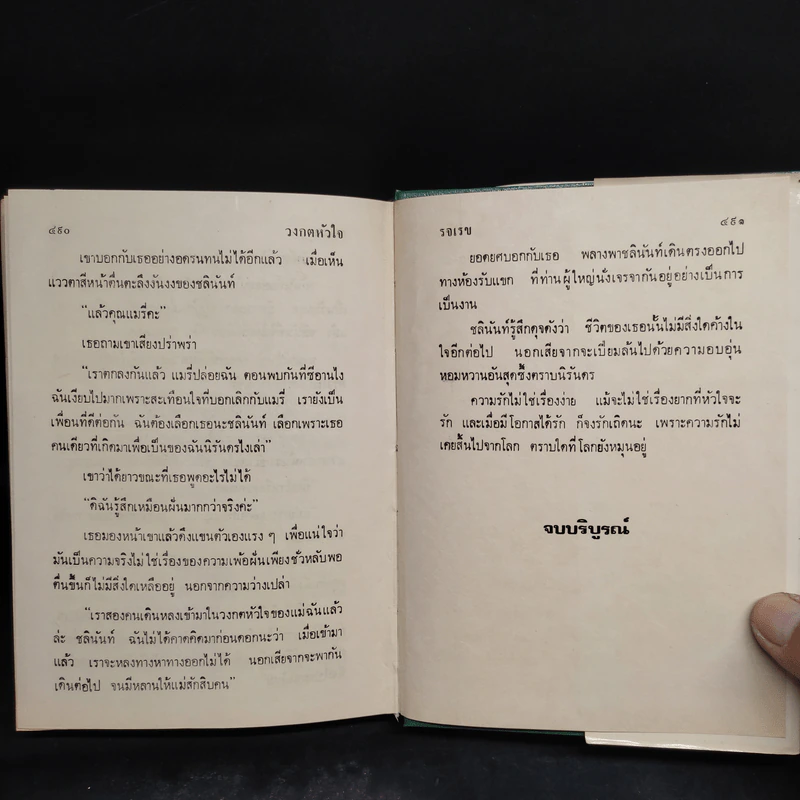 ๔๙๐ วงกตหัวใจ
เขาบอกกับเธออย่างอดรนทนไม่ได้อีกแล้ว เมื่อเห็น
แววตาสีหน้าตื่นตะลึงงันงงของชลินันท์
“แล้วคุณแมรี่คะ”
เธอถามเขาเสียงปร่าพร่า
“เราตกลงกันแล้ว แมรี่ปล่อยฉัน ตอนพบกันที่ซีอานไง
ฉันเงียบไปมากเพราะสะเทือนใจที่บอกเลิกกับแมรี่ เรายังเป็น
เพื่อนที่ดีต่อกัน ฉันต้องเลือกเธอนะชลินันท์ เลือกเพราะเธอ
คนเดียวที่เกิดมาเพื่อเป็นของฉันนิรันดรไงเล่า”
เขาว่าได้ยาวขณะที่เธอพูดอะไรไม่ได้
“ดิฉันรู้สึกเหมือนฝันมากกว่าจริงค่ะ”
เธอมองหน้าเขาแล้วดึงแขนตัวเองแรง ๆ เพื่อแน่ใจว่า
มันเป็นความจริงไม่ใช่เรื่องของความเพ้อฝันเพียงชั่วหลับพอ
ตื่นขึ้นก็ไม่มีสิ่งใดเหลืออยู่ นอกจากความว่างเปล่า
“เราสองคนเดินหลงเข้ามาในวงกตหัวใจของแม่ฉันแล้ว
ล่ะ ชลินันท์ ฉันไม่ได้คาดคิดมาก่อนดอกนะว่า เมื่อเข้ามา
แล้ว เราจะหลงทางหาทางออกไม่ได้ นอกเสียจากจะพากัน
เดินต่อไป จนมีหลานให้แม่สักสิบคน”
รจเรข ๔๙๑
ยอดยศบอกกับเธอ พลางพาชลินันท์เดินตรงออกไป
ทางห้องรับแขก ที่ท่านผู้ใหญ่นั่งเจรจากันอยู่อย่างเป็นการ
เป็นงาน
ชลินันท์รู้สึกดุจดังว่า ชีวิตของเธอนั้นไม่มีสิ่งใดค้างใน
ใจอีกต่อไป นอกเสียจากจะเปี่ยมล้นไปด้วยความอบอุ่น
หอมหวานอันสุดซึ้งตราบนิรันดร
ความรักไม่ใช่เรื่องง่าย แม้จะไม่ใช่เรื่องยากที่หัวใจจะ
รัก และเมื่อมีโอกาสได้รัก ก็จงรักเถิดนะ เพราะความรักไม่
เคยสิ้นไปจากโลก ตราบใดที่โลกยังหมุนอยู่
จบบริบูรณ์